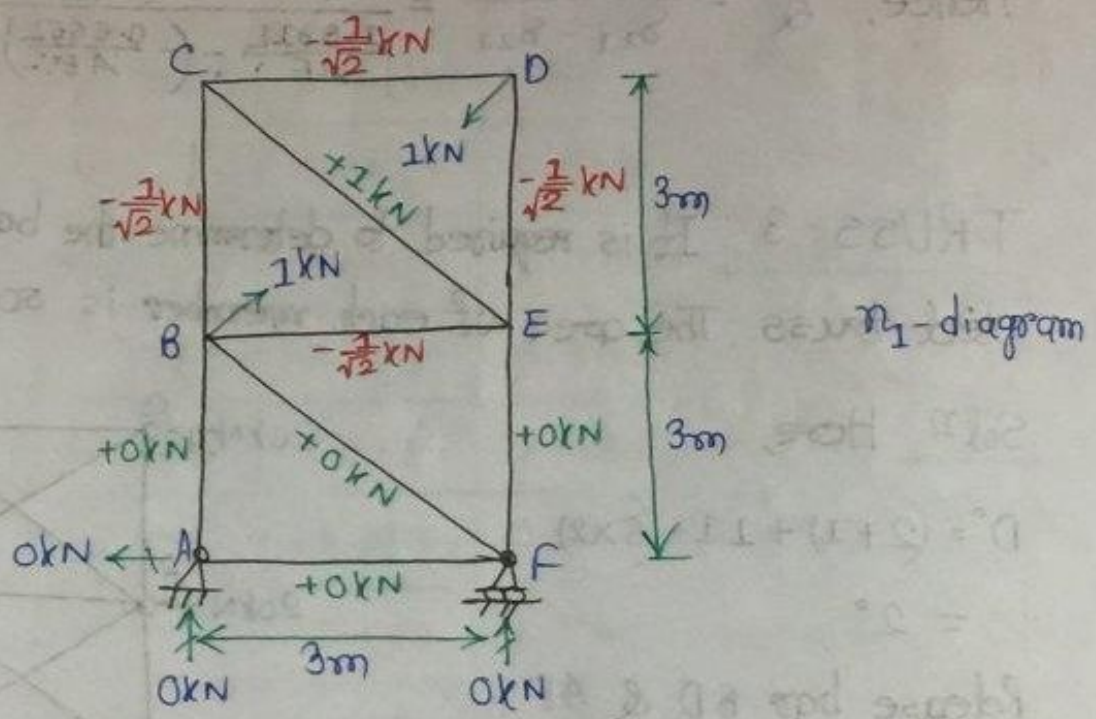 Hence,
-1/√2 kN
C
D
1kN
+1kN
-1/√2 kN
-1/√2 kN
3m
1kN
B
E
-1/√2 kN
n1-diagram
+0kN
+0kN
+0kN
3m
0kN
A
F
+0kN
3m
0kN
0kN